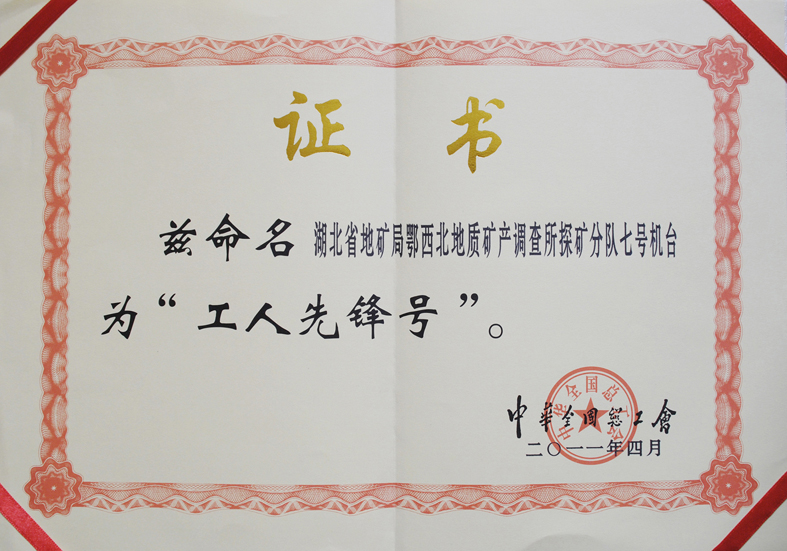 证书
兹命名 湖北省地矿局鄂西北地质矿产调查所探矿分队七号机台
为“工人先锋号”。
中华全国总工会
中華全國總工會
二〇一一年四月